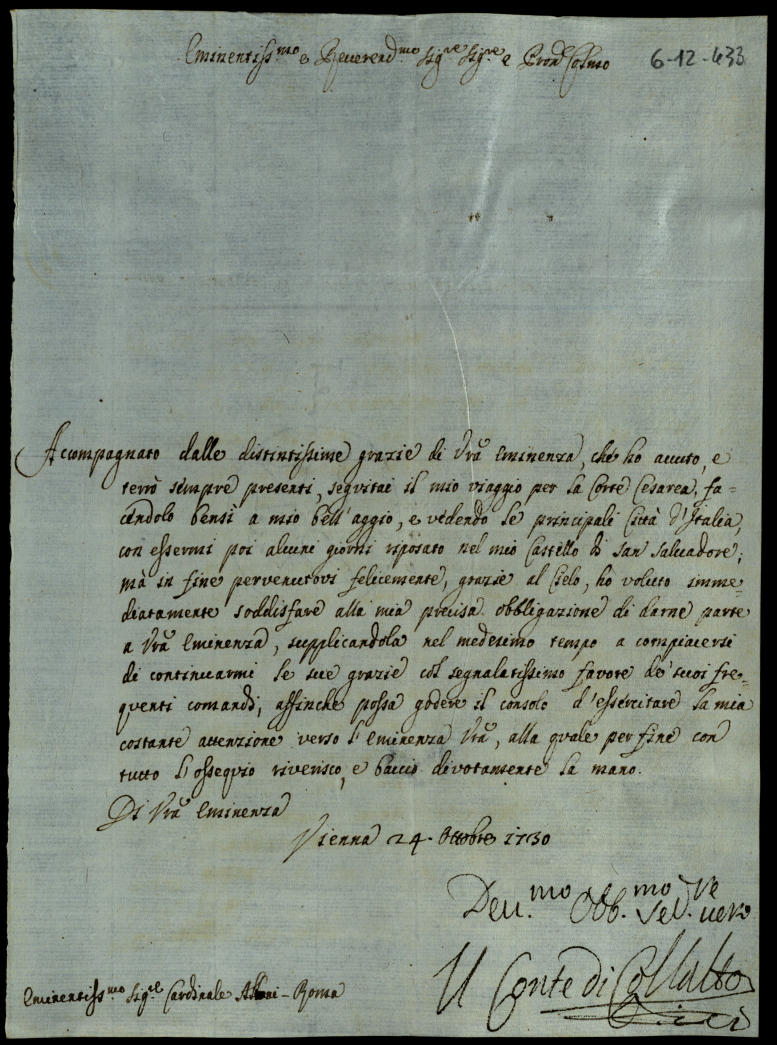 Eminentiss.mo e Reverend.mo Sig.re Sig.re e Pron Colmo
6-12-433
Accompagnato dalle distintissime grazie di Vrã Eminenza, che ho avuto, e
terrò sempre presenti, seguitai il mio viaggio per la Corte Cesarea, fa=
cendolo bensì a mio bell'aggio, e vedendo le principali Città d'Italia,
con essermi poi alcuni giorni riposato nel mio Castello di San Salvadore;
mà in fine pervenutovi felicemente, grazie al Cielo, ho voluto imme=
diatamente soddisfare alla mia precisa obbligazione di darne parte
a Vrã Eminenza, supplicandola nel medesimo tempo a compiacersi
di continuarmi le sue grazie col segnalatissimo favore de' suoi fre=
quenti comandi, affinche possa godere il consolo d'essercitare la mia
costante attenzione verso l'Eminenza Vrã, alla quale per fine con
tutto l'ossequio riverisco, e baccio divotamente la mano.
Di Vrã Eminenza
Vienna 24. Ottobre 1730
Deu.mo Obb.mo Ser.re vero
Il Conte di Collalto
Eminentiss.mo Sig.re Cardinale Albani - Roma